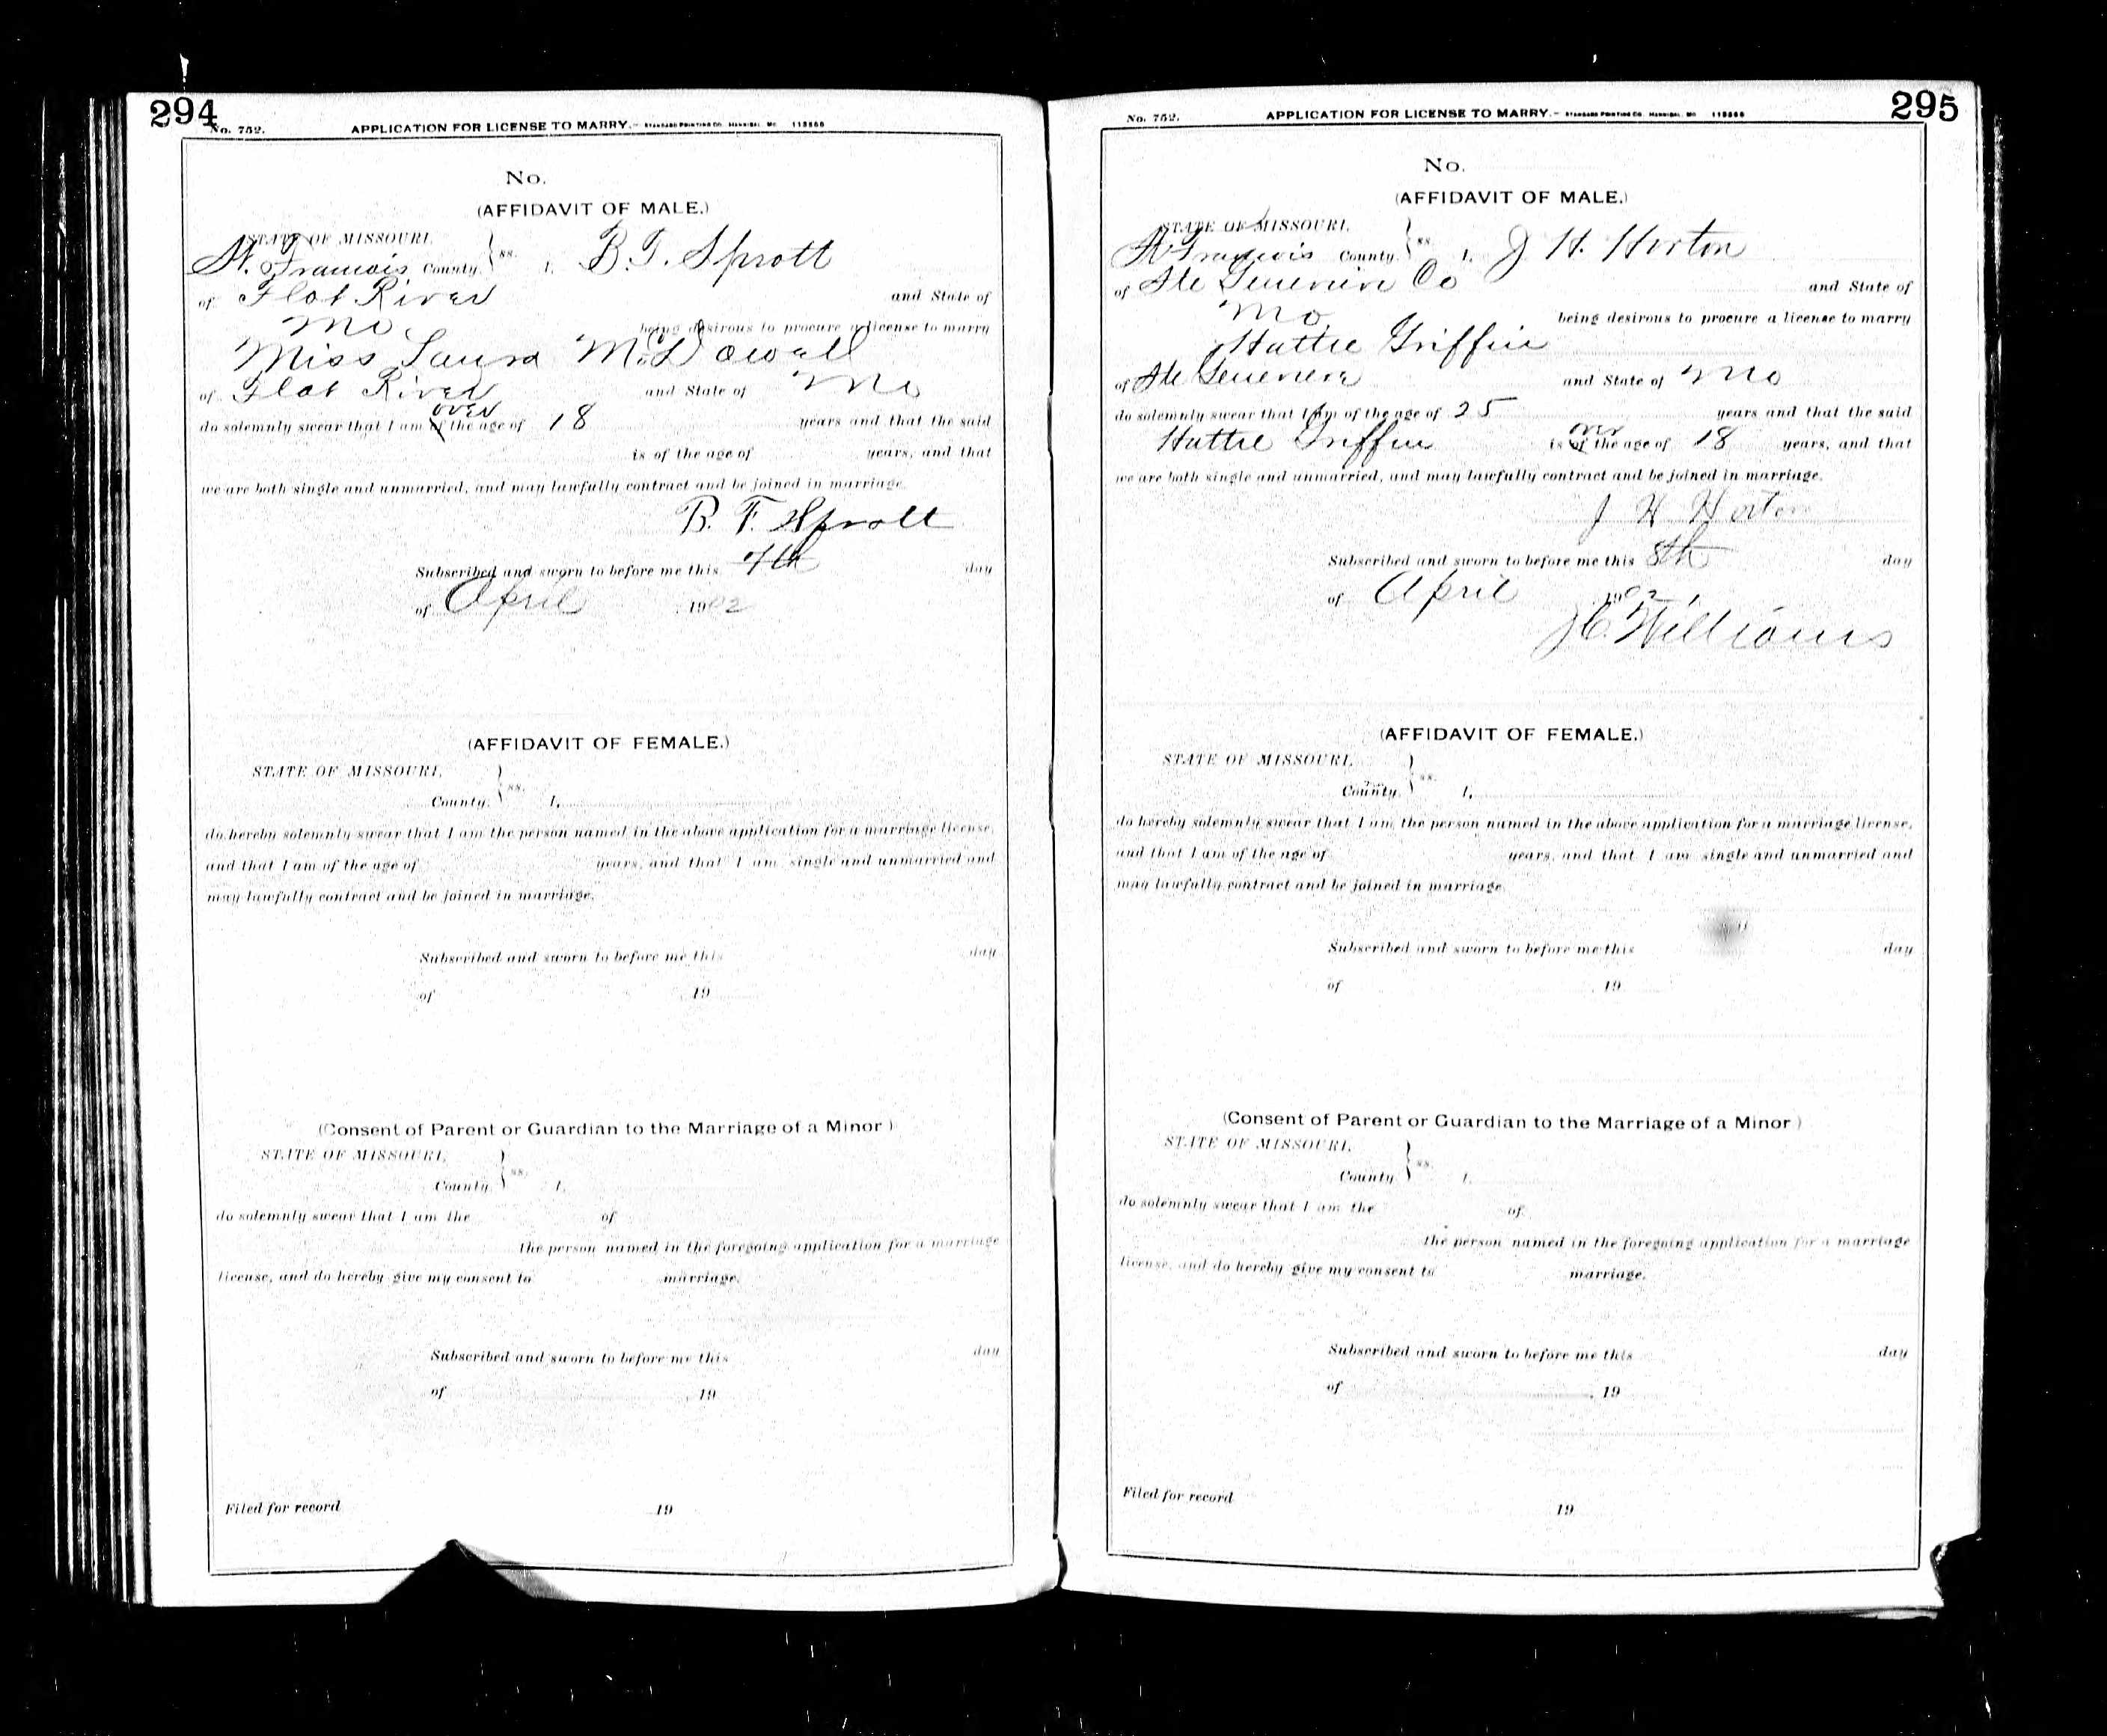 294
No. 752. APPLICATION FOR LICENSE TO MARRY.— STANDARD PRINTING CO. HANNIBAL, MO. 113566
No.
(AFFIDAVIT OF MALE.)
STATE OF MISSOURI,
St. Francois County. } ss. I, B. F. Sprott
of Flat River and State of
Mo. being desirous to procure a license to marry
Miss Laura McDowell
of Flat River and State of Mo
over
do solemnly swear that I am of the age of 18 years and that the said
is of the age of years, and that
we are both single and unmarried, and may lawfully contract and be joined in marriage.
B. F. Sprott
Subscribed and sworn to before me this 7th day
of April 1902
(AFFIDAVIT OF FEMALE.)
STATE OF MISSOURI,
County. } ss. I,
do hereby solemnly swear that I am the person named in the above application for a marriage license,
and that I am of the age of years, and that I am single and unmarried and
may lawfully contract and be joined in marriage.
Subscribed and sworn to before me this day
of , 19
(Consent of Parent or Guardian to the Marriage of a Minor.)
STATE OF MISSOURI,
County. } ss. I,
do solemnly swear that I am the of
the person named in the foregoing application for a marriage
license, and do hereby give my consent to marriage.
Subscribed and sworn to before me this day
of , 19
Filed for record 19
295
No. 752. APPLICATION FOR LICENSE TO MARRY.— STANDARD PRINTING CO. HANNIBAL, MO. 113566
No.
(AFFIDAVIT OF MALE.)
STATE OF MISSOURI,
St Francois County. } ss. I, J. H. Horton
of Ste Genevieve Co and State of
Mo. being desirous to procure a license to marry
Hattie Griffin
of Ste Genevieve and State of Mo
do solemnly swear that I am of the age of 25 years and that the said
over
Hattie Griffin is of the age of 18 years, and that
we are both single and unmarried, and may lawfully contract and be joined in marriage.
J H Horton
Subscribed and sworn to before me this 8th day
of April , 1902
Williams
(AFFIDAVIT OF FEMALE.)
STATE OF MISSOURI,
County. } ss. I,
do hereby solemnly swear that I am the person named in the above application for a marriage license,
and that I am of the age of years, and that I am single and unmarried and
may lawfully contract and be joined in marriage.
Subscribed and sworn to before me this day
of , 19
(Consent of Parent or Guardian to the Marriage of a Minor.)
STATE OF MISSOURI,
County. } ss. I,
do solemnly swear that I am the of
the person named in the foregoing application for a marriage
license, and do hereby give my consent to marriage.
Subscribed and sworn to before me this day
of , 19
Filed for record 19